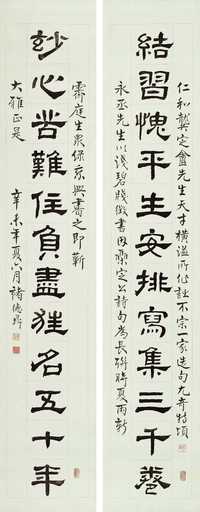 仁和龔定盦先生天才橫溢所作詩不宗一家造句尤奇特頃
結習愧平生安排寫集三千卷
永丞先生以淺碧牋徵書因集定公詩句為長聯時夏雨新
霽庭生眾綠乘興書之即蘄
妙心苦難住負盡狂名五十年
大雅正是
辛未年夏六月褚德彝